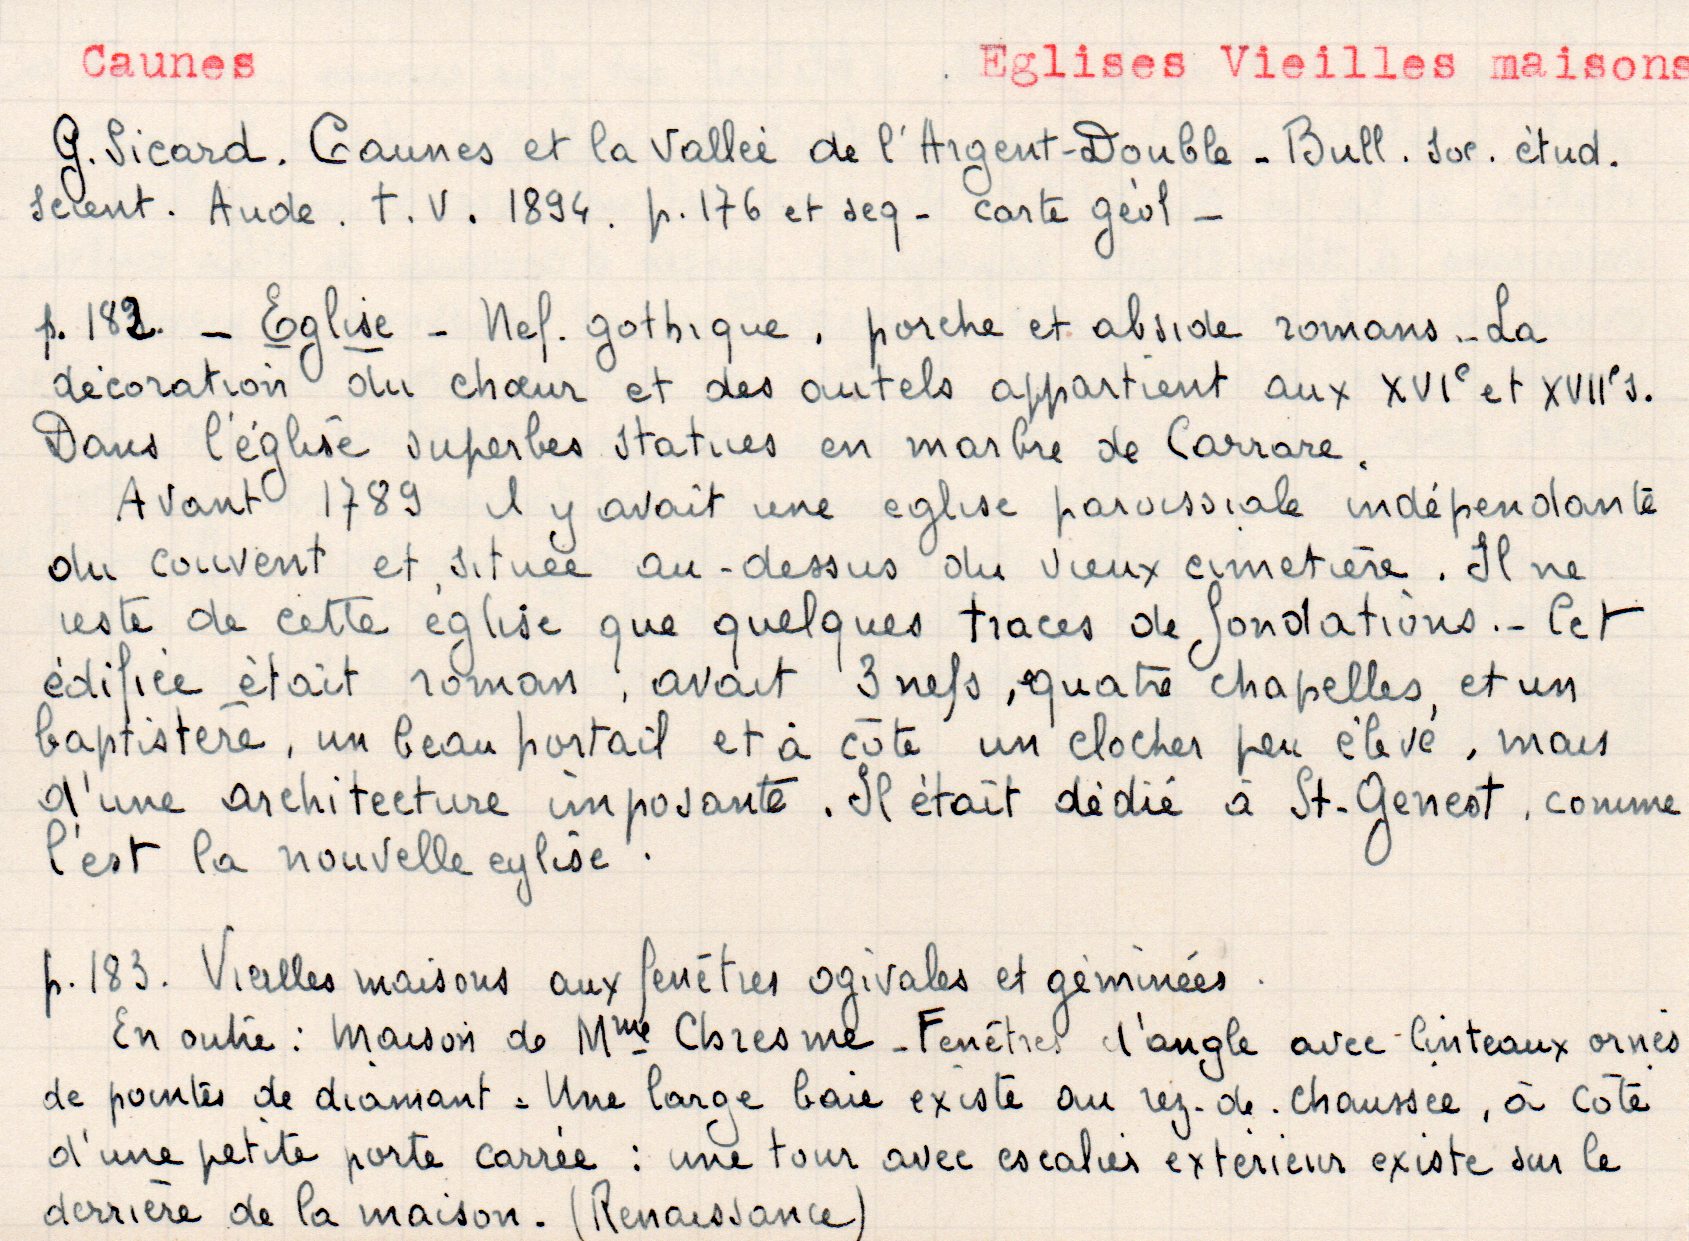 Caunes Eglises Vieilles maisons
G. Sicard. Caunes et la vallée de l'Argent-Double - Bull. Soc. étud.
scient. Aude. T. V. 1894. p. 176 et seq - carte géol -
p. 182. - Eglise - Nef. gothique, porche et abside romans. - La
décoration du chœur et des autels appartient aux XVIe et XVIIe s.
Dans l'église superbes statues en marbre de Carrare.
Avant 1789 il y avait une eglise paroissiale indépendante
du couvent et située au-dessus du vieux cimetière. Il ne
reste de cette église que quelques traces de fondations. - Cet
édifice était roman, avait 3 nefs, quatre chapelles, et un
baptistère, un beau portail et à côté un clocher peu élevé, mais
d'une architecture imposante. Il était dédié à St-Genest, comme
l'est la nouvelle eglise.
p. 183. Vieilles maisons aux fenêtres ogivales et géminées.
En outre : Maison de Mme - Fenêtres d'angle avec linteaux ornés
de pointes de diamant = Une large baie existe au rez-de-chaussée, à côté
d'une petite porte carrée : une tour avec escalier extérieur existe sur le
derrière de la maison. (Renaissance)